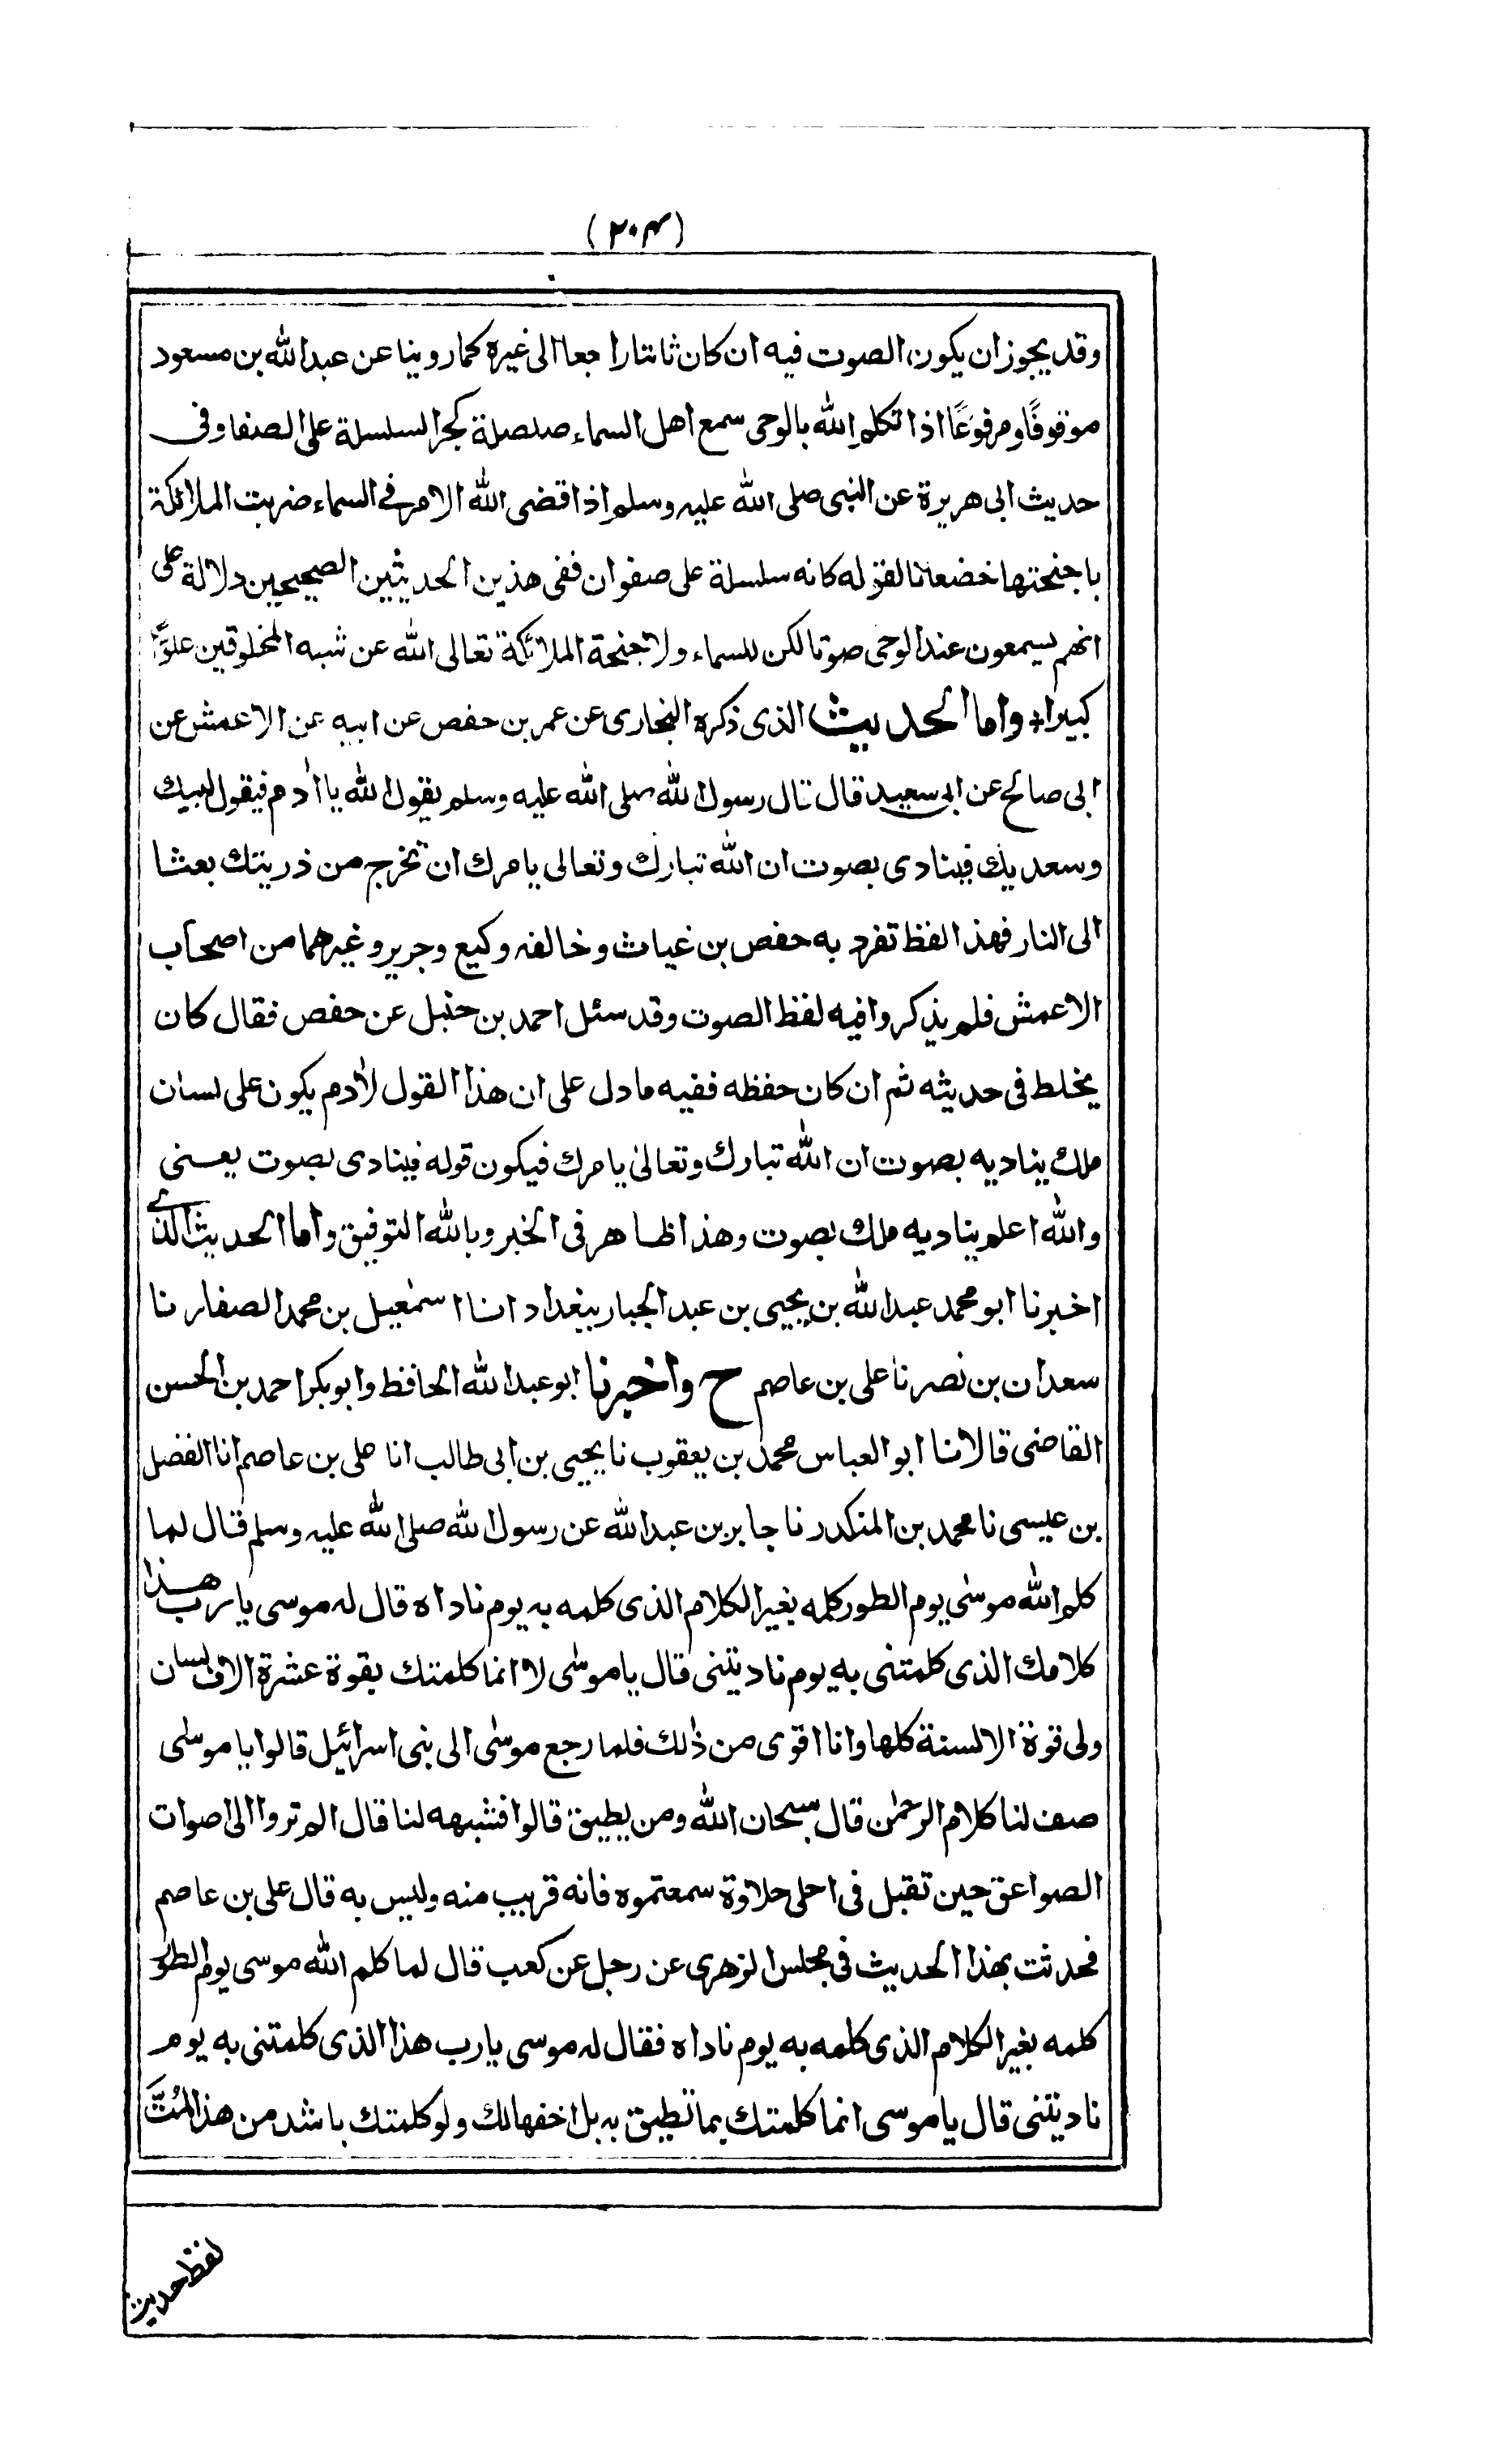 (٢٠٤)
وقد يجوز ان يكون الصوت فيه ان كان ثابتا راجعا الى غيره كما روينا عن عبد الله بن مسعود
موقوفًا ومرفوعًا اذا تكلم الله بالوحى سمع اهل السماء صلصلة كجر السلسلة على الصفا وفى
حديث ابى هريرة عن النبى صلى الله عليه وسلم اذا قضى الله الامر فے السماء ضربت الملائكة
باجنحتها خضعانا لقوله كانه سلسلة على صفوان ففى هذين الحديثين الصحيحين دلالة على
انهم يسمعون عند الوحى صوتا لكن للسماء ولاجنحة الملائكة تعالى الله عن شبه المخلوقين علوًّا
كبيرا + واما الحديث الذى ذكره البخارى عن عمر بن حفص عن ابيه عن الاعمش عن
ابى صالح عن ابى سعيد قال قال رسول الله صلى الله عليه وسلم يقول الله يا اٰدم فيقول لبيك
وسعديك فينادى بصوت ان الله تبارك وتعالى يامرك ان تخرج من ذريتك بعثا
الى النار فهذا لفظ تفرد به حفص بن غياث وخالفه وكيع وجرير وغيرهما من اصحاب
الاعمش فلم يذكروا فيه لفظ الصوت وقد سئل احمد بن حنبل عن حفص فقال كان
يخلط فى حديثه ثم ان كان حفظه ففيه ما دل على ان هذا القول لاٰدم يكون على لسان
ملك يناديه بصوت ان الله تبارك وتعالىٰ يامرك فيكون قوله فينادى بصوت يعنى
والله اعلم يناديه ملك بصوت وهذا ظاهر فى الخبر وبالله التوفيق واما الحديث الذے
اخبرنا ابو محمد عبد الله بن يحيى بن عبد الجبار ببغداد انا اسمٰعيل بن محمد الصفار نا
سعدان بن نصر نا على بن عاصم ح واخبرنا ابو عبد الله الحافظ وابو بكر احمد بن الحسن
القاضى قالا نا ابو العباس محمد بن يعقوب نا يحيى بن ابى طالب انا على بن عاصم انا الفضل
بن عيسى نا محمد بن المنكدر نا جابر بن عبد الله عن رسول الله صلى الله عليه وسلم قال لما
كلم الله موسٰى يوم الطور كلمه بغير الكلام الذى كلمه به يوم ناداه قال له موسى يا رب هذا
كلامك الذى كلمتنى به يوم ناديتنى قال يا موسٰى لا انما كلمتك بقوة عشرة الاف لسان
ولى قوة الالسنة كلها وانا اقوى من ذٰلك فلما رجع موسٰى الى بنى اسرائيل قالوا يا موسٰى
صف لنا كلام الرحمٰن قال سبحان الله ومن يطيق قالوا فشبهه لنا قال الم تروا الى اصوات
الصواعق حين تقبل فى احلى حلاوة سمعتموه فانه قريب منه وليس به قال على بن عاصم
فحدثت بهذا الحديث فى مجلس الزهرى عن رجل عن كعب قال لما كلم الله موسى يوم الطور
كلمه بغير الكلام الذى كلمه به يوم ناداه فقال له موسى يا رب هذا الذى كلمتنى به يوم
ناديتنى قال يا موسى انما كلمتك بما تطيق به بل اخفها لك ولو كلمتك باشد من هذا لمُتَّ
لفظ حديث